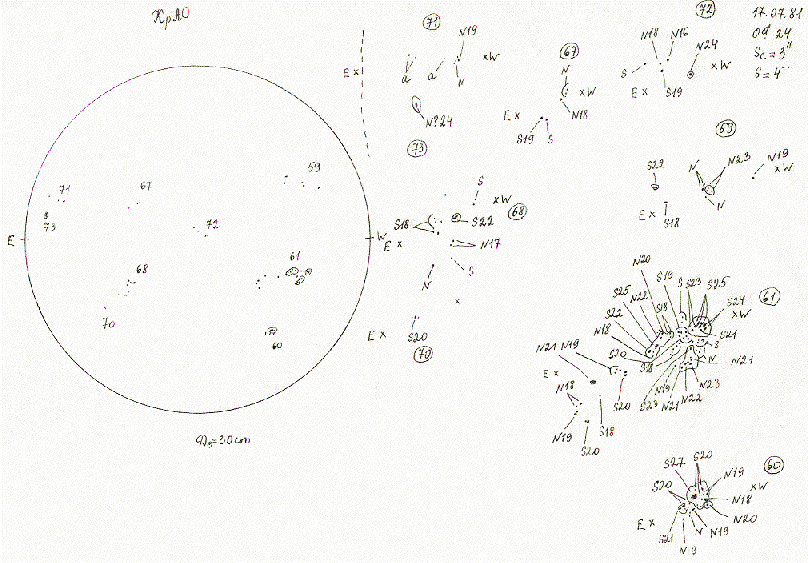 КрАО
17.07.81
S=4"
E
W
71
67
59
73
72
68
61
70
60
71
N19
E x
x W
a
a
N
N?24
67
N
x W
E x
N18
S19
S
72
N18
N16
N24
S
x W
E x
S19
63
S29
N
N23
N19
x W
N
E x
S18
73
S
x W
68
S18
S22
E x
N17
S
N
x
E x
S20
70
61
N20
S19
S
S23
S25
S25
N22
S18
S24
S22
x W
N18
S21
N21
N19
S20
S
E x
N
N21
N18
S20
S23
N19
N21
N22
N23
N19
S18
S20
60
S27
S20
N19
S20
x W
N18
E x
N20
S21
N
N19
N19